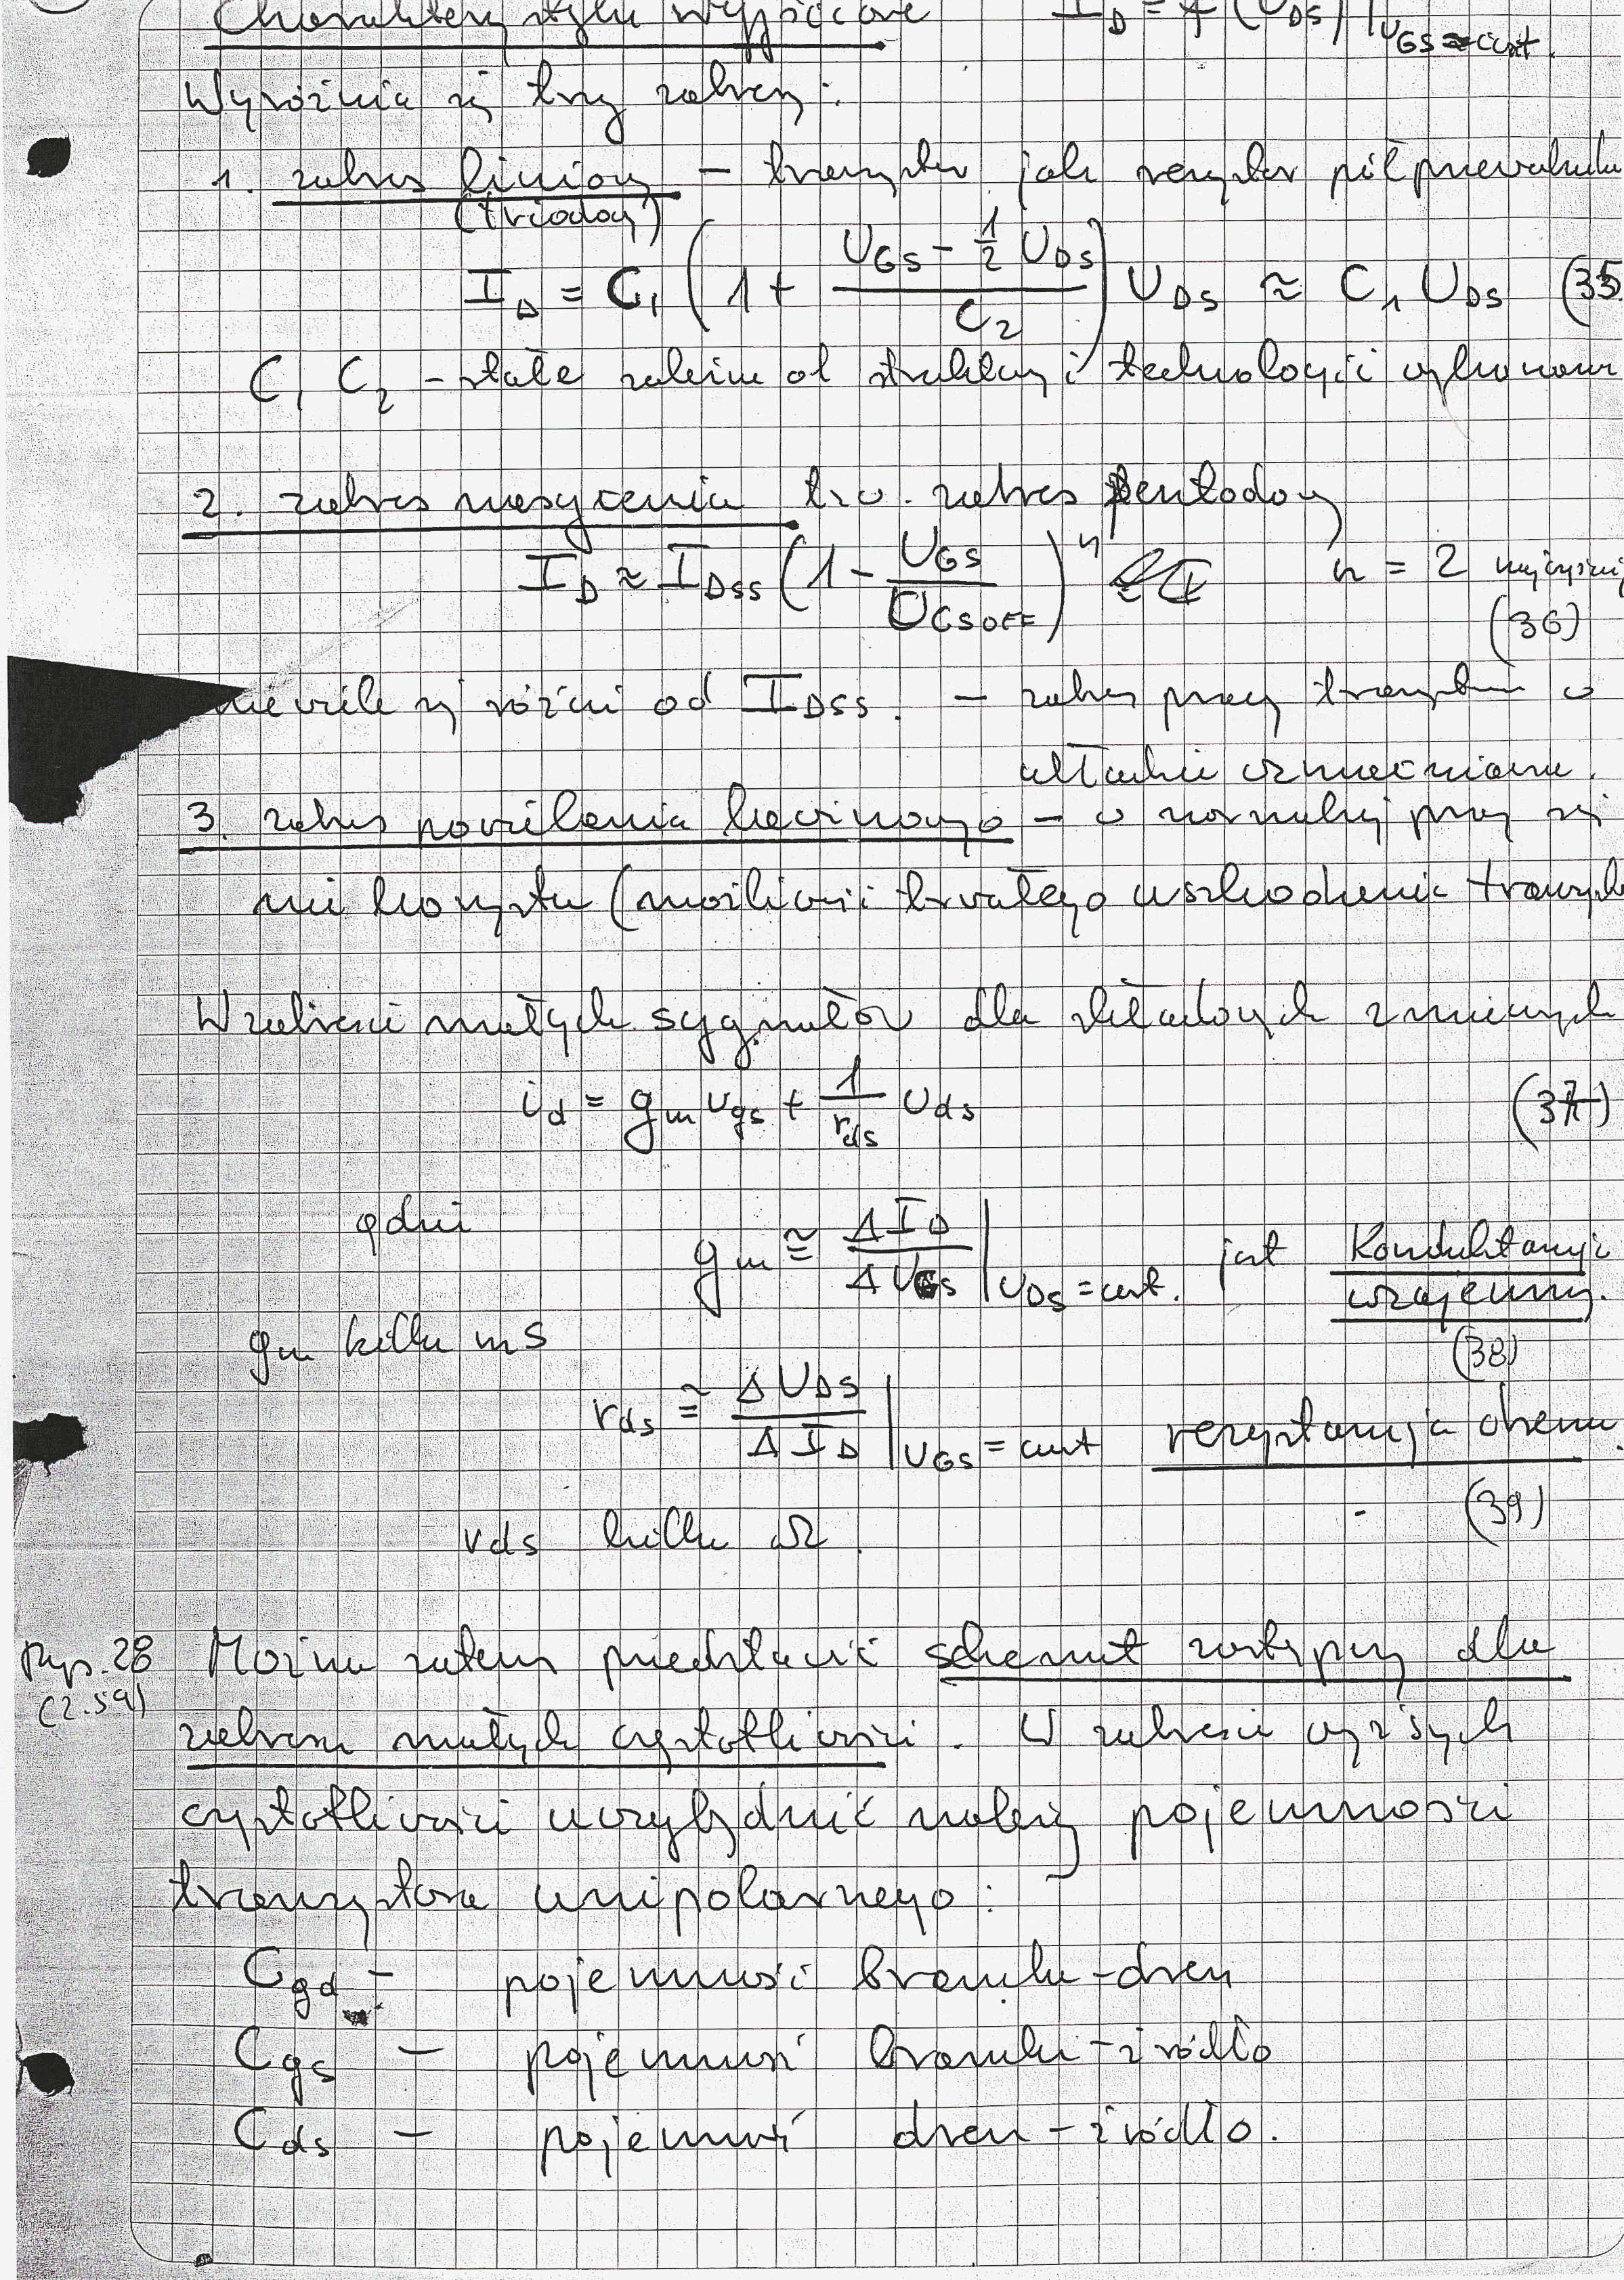 Charakterystyki wyjściowe I_D = f(U_DS)|U_GS = const.
Wyróżnia się trzy zakresy:
1. zakres liniowy – tranzystor jako rezystor półprzewodnik
(triodowy)
I_D = C_1 (1 + (U_GS - 1/2 U_DS)/C_2) U_DS ≈ C_1 U_DS (35
C_1 C_2 – stałe zależne od struktury i technologii wykonania
2. zakres nasycenia tzw. zakres pentodowy
I_D ≈ I_DSS (1 - U_GS/U_GSOFF)^n n = 2 najczęściej
(36)
niewiele się różni od I_DSS. – zakres pracy tranzystora w
układzie wzmacniacza.
3. zakres powielania lawinowego – w normalnej pracy się
nie korzysta (możliwość trwałego uszkodzenia tranzyst
W zakresie małych sygnałów dla składowych zmiennych
i_d = g_m u_gs + 1/r_ds u_ds (37)
gdzie g_m ≅ ΔI_D/ΔU_GS |U_DS = const. jest Konduktancją
wzajemną.
g_m kilka mS (38)
r_ds ≅ ΔU_DS/ΔI_D |U_GS = const rezystancja drenu.
(39)
r_ds kilka Ω.
Rys. 28 Można zatem przedstawić schemat zastępczy dla
(2.59)
zakresu małych częstotliwości. W zakresie wyższych
częstotliwości uwzględnić należy pojemności
tranzystora unipolarnego:
C_gd – pojemność bramka-dren
C_gs – pojemność bramka-źródło
C_ds – pojemność dren-źródło.